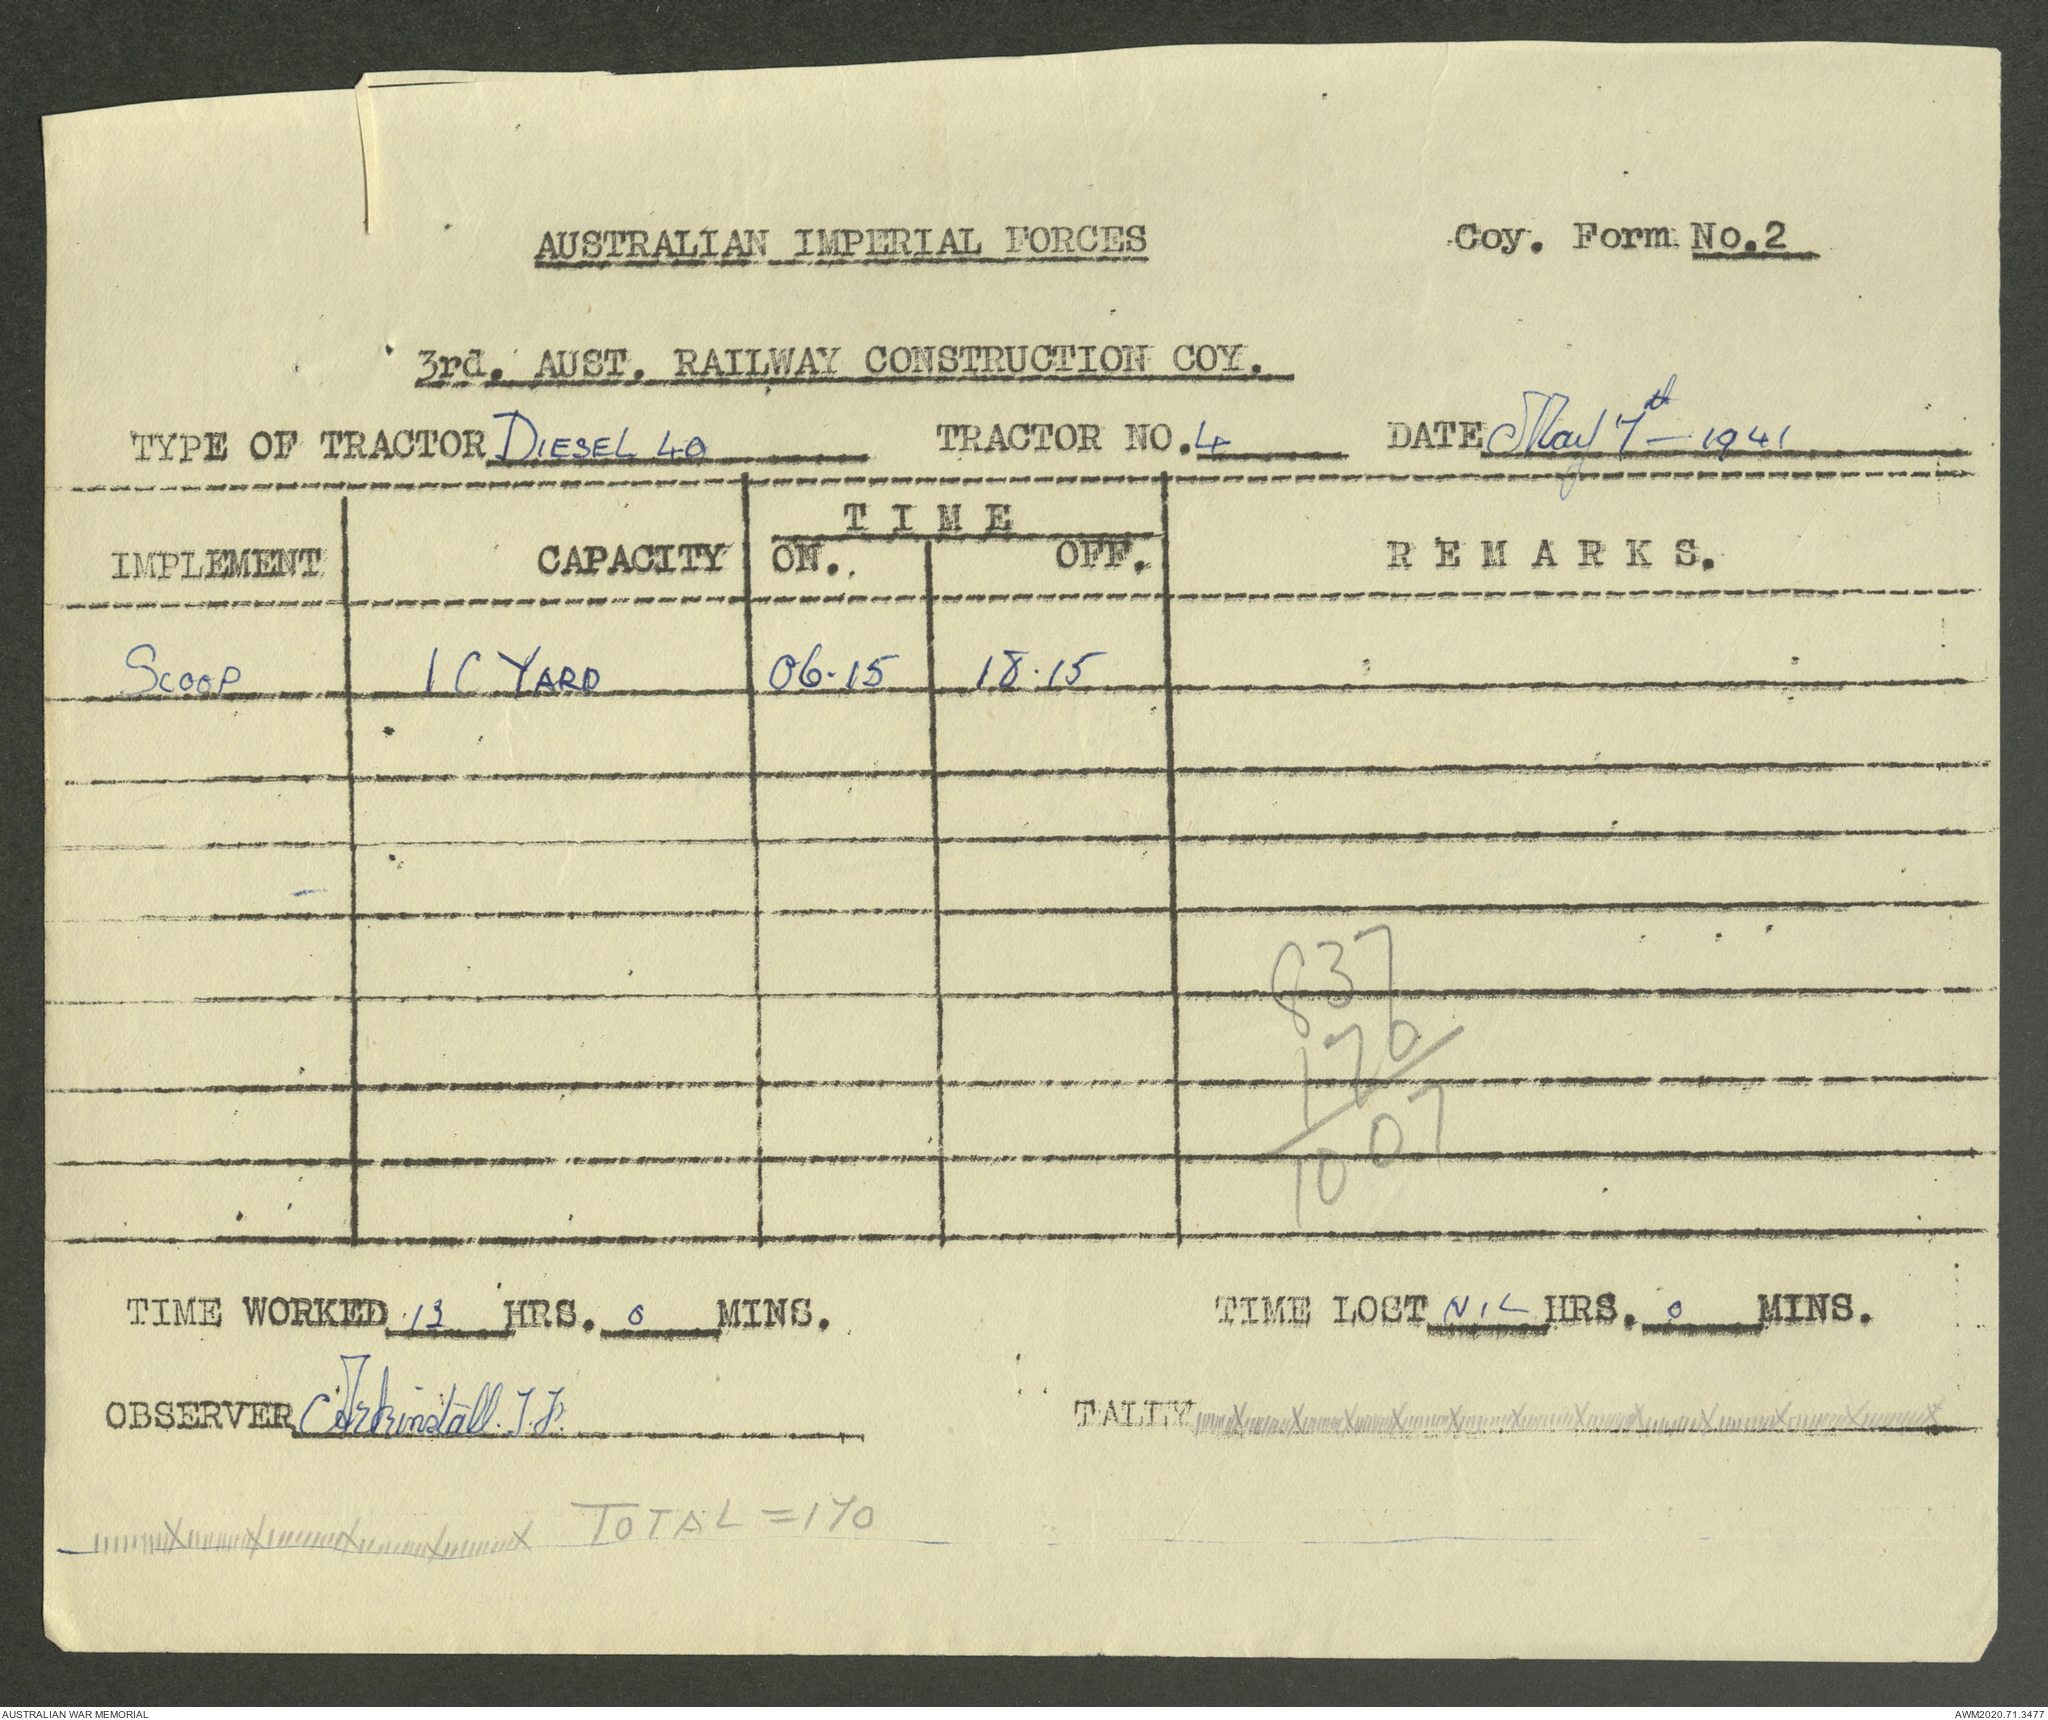 AUSTRALIAN IMPERIAL FORCES Coy. Form No.2
3rd. AUST. RAILWAY CONSTRUCTION COY.
TYPE OF TRACTOR DIESEL 40 TRACTOR NO. 4 DATE May 7th - 1941
TIME
IMPLEMENT CAPACITY ON. OFF. REMARKS.
SCOOP 1 C YARD 06.15 18.15
837
170
1007
TIME WORKED 13 HRS. 0 MINS. TIME LOST NIL HRS. 0 MINS.
OBSERVER Arkinstall. TALLY
TOTAL = 170
AUSTRALIAN WAR MEMORIAL AWM2020.71.3477